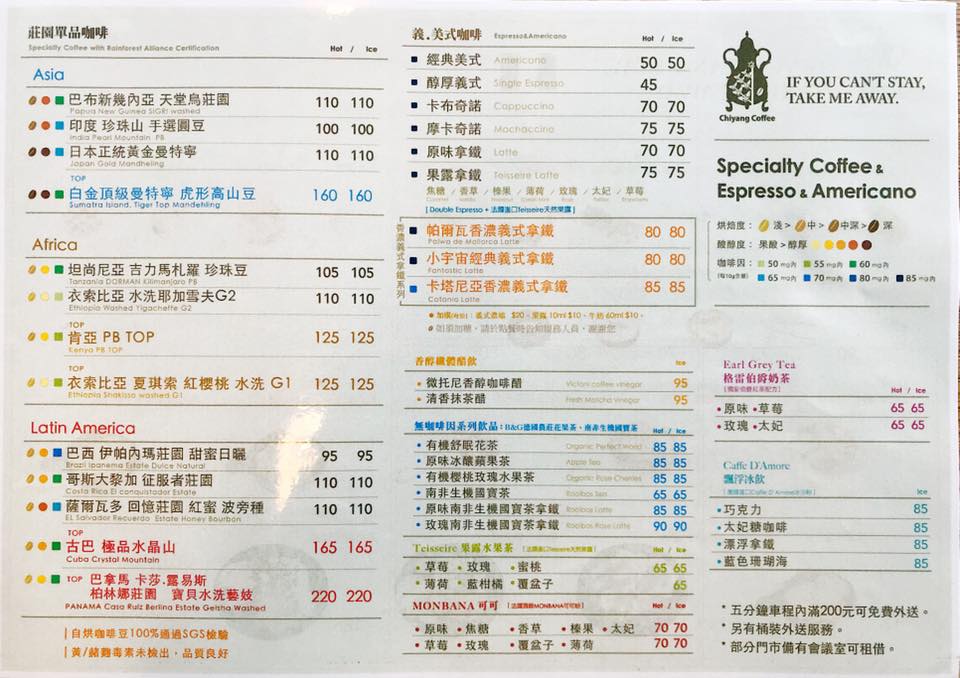 莊園單品咖啡
Specialty Coffee with Rainforest Alliance Certification Hot / Ice
Asia
巴布新幾內亞 天堂鳥莊園 110 110
Papua New Guinea SIGRI washed
印度 珍珠山 手選圓豆 100 100
India Pearl Mountain PB
日本正統黃金曼特寧 110 110
Japan Gold Mandheling
TOP
白金頂級曼特寧 虎形高山豆 160 160
Sumatra Island, Tiger Top Mandehling
Africa
坦尚尼亞 吉力馬札羅 珍珠豆 105 105
Tanzania DORMAN Kilimanjaro PB
衣索比亞 水洗耶加雪夫G2 110 110
Ethiopia Washed Yigacheffe G2
TOP
肯亞 PB TOP 125 125
Kenya PB TOP
TOP
衣索比亞 夏琪索 紅櫻桃 水洗 G1 125 125
Ethiopia Shakisso washed G1
Latin America
巴西 伊帕內瑪莊園 甜蜜日曬 95 95
Brazil Ipanema Estate Dulce Natural
哥斯大黎加 征服者莊園 110 110
Costa Rica El conquistador Estate
薩爾瓦多 回憶莊園 紅蜜 波旁種 110 110
EL Salvador Recuerdo Estate Honey Bourbon
TOP
古巴 極品水晶山 165 165
Cuba Crystal Mountain
TOP 巴拿馬 卡莎.露易斯
柏林娜莊園 寶貝水洗藝妓 220 220
PANAMA Casa Ruiz Berlina Estate Geisha Washed
自烘咖啡豆100%通過SGS檢驗
黃/赭麴毒素未檢出,品質良好
義.美式咖啡 Espresso&Americano Hot / Ice
經典美式 Americano 50 50
醇厚義式 Single Espresso 45
卡布奇諾 Cappuccino 70 70
摩卡奇諾 Mochaccino 75 75
原味拿鐵 Latte 70 70
果露拿鐵 Teisseire Latte 75 75
焦糖 / 香草 / 榛果 / 薄荷 / 玫瑰 / 太妃 / 草莓
[Double Espresso + 法國進口Teisseire天然果露]
香濃義式拿鐵系列
帕爾瓦香濃義式拿鐵 80 80
Palwa de Mallorca Latte
小宇宙經典義式拿鐵 80 80
Fantastic Latte
卡塔尼亞香濃義式拿鐵 85 85
Catania Latte
加購(每份):義式濃縮 $20、果露 10ml $10、牛奶 60ml $10。
如須加糖,請於點餐時告知服務人員,謝謝您
香醇纖體醋飲 Ice
微托尼香醇咖啡醋 Victoni coffee vinegar 95
清香抹茶醋 Fresh Matcha vinegar 95
無咖啡因系列飲品:B&G德國農莊花果茶、南非生機國寶茶 Hot / Ice
有機舒眠花茶 Organic Perfect World 85 85
原味冰釀蘋果茶 Apple Tea 85 85
有機櫻桃玫瑰水果茶 Organic Rose Cherries 85 85
南非生機國寶茶 Rooibos Tea 65 65
原味南非生機國寶茶拿鐵 Rooibos Latte 85 85
玫瑰南非生機國寶茶拿鐵 Rooibos Rose Latte 90 90
Teisseire 果露水果茶 [法國進口Teisseire天然果露] Hot / Ice
草莓 玫瑰 蜜桃 65 65
薄荷 藍柑橘 覆盆子 65
MONBANA 可可 [法國頂級MONBANA可可粉] Hot / Ice
原味 焦糖 香草 榛果 太妃 70 70
草莓 玫瑰 覆盆子 薄荷 70 70
Chiyang Coffee
IF YOU CAN'T STAY,
TAKE ME AWAY.
Specialty Coffee &
Espresso & Americano
烘焙度: 淺 > 中 > 中深 > 深
酸醇度: 果酸 > 醇厚
咖啡因: 50 mg內 55 mg內 60 mg內
(每10g含量) 65 mg內 70 mg內 80 mg內 85 mg內
Earl Grey Tea
格雷伯爵奶茶
Hot / Ice
原味 草莓 65 65
玫瑰 太妃 65 65
Caffe D'Amore
飄浮冰飲
Ice
巧克力 85
太妃糖咖啡 85
漂浮拿鐵 85
藍色珊瑚海 85
* 五分鐘車程內滿200元可免費外送。
* 另有桶裝外送服務。
* 部分門市備有會議室可租借。